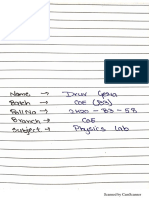 Name →
Batch → COE
Roll No → 2K20 - B3 - 58
Branch → COE
Subject → Physics Lab
Scanned by CamScanner